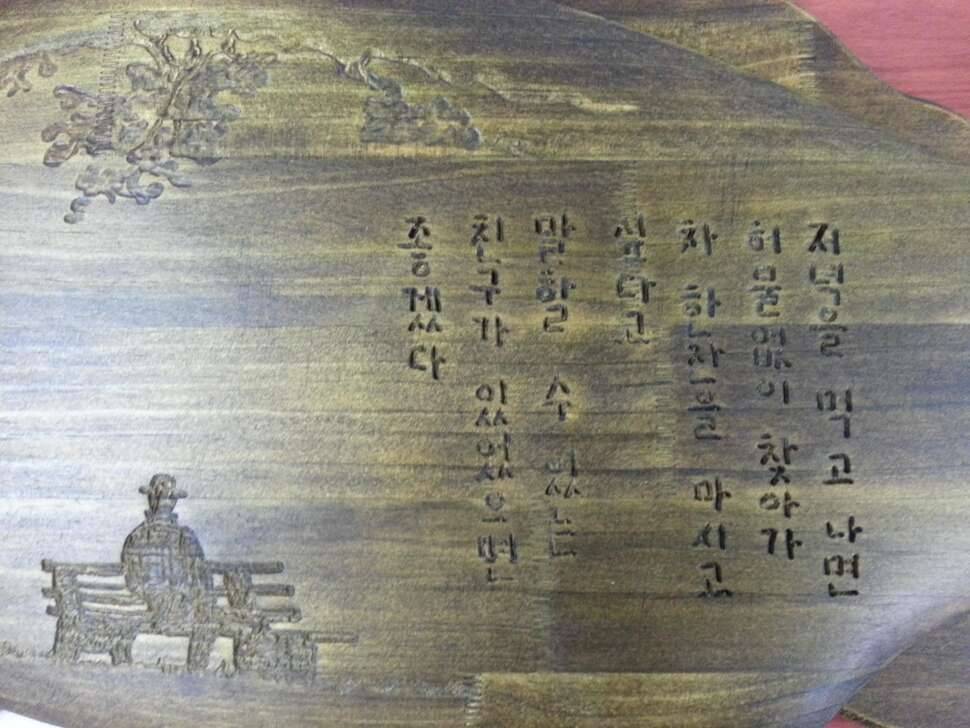 저녁을 먹고 나면
허물없이 찾아가
차 한잔을 마시고
싶다고
말할 수 있는
친구가 있었으면
좋겠다